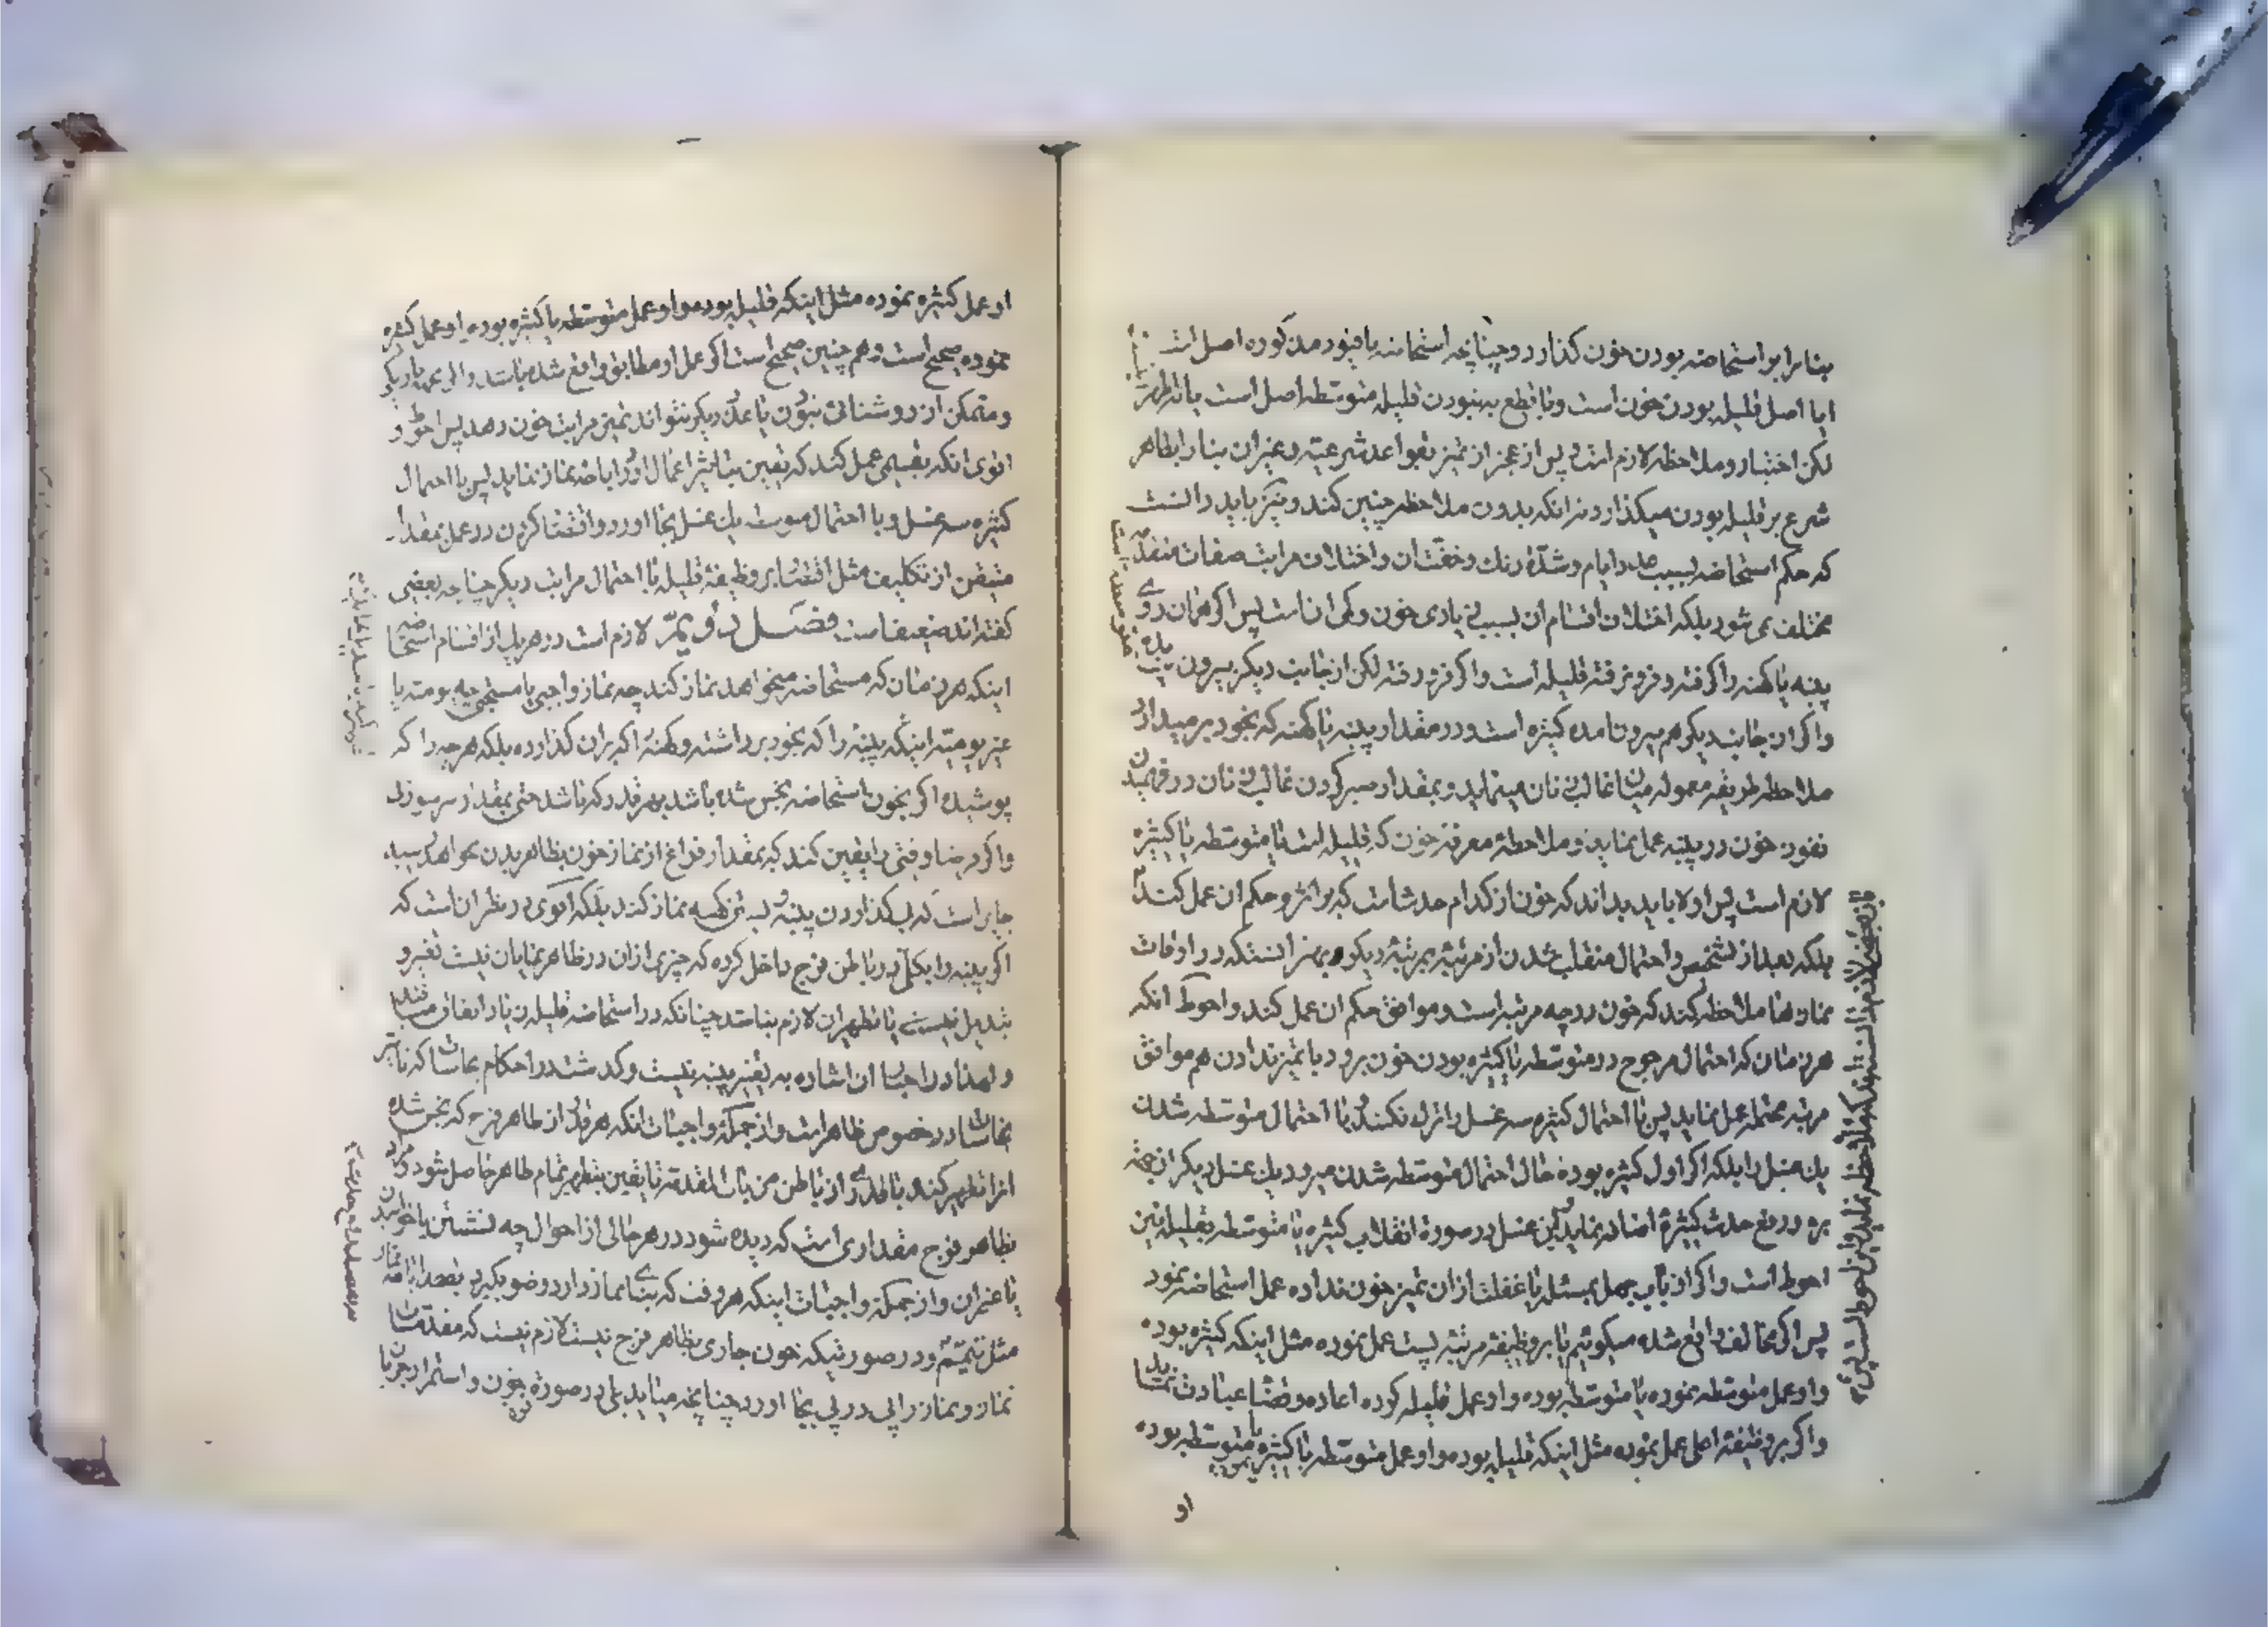 بنا را بر استحاضه بودن خون گذارد و چنانچه استحاضه با قیود مذکوره اصل است
ایا اصل قلیله بودن خون است و با قطع به نبودن قلیله متوسطه اصل است یا نه اظهر
لکن اختبار و ملاحظه لازم است پس از عجز از تمیز بقواعد شرعیه و غیر ان بنا را بظاهر
شرع بر قلیله بودن میگذارد نه انکه بدون ملاحظه چنین کند و نیز باید دانست
که حکم استحاضه بسبب ایام و شدة رنك و خفّت ان و اختلاف مراتب صفات
مختلف نمی شود بلکه اختلاف اقسام ان بسبب زیادی خون و کمی ان است پس اگر همان روی
پنبه یا کهنه را گرفته و فرو نرفته قلیله است و اگر فرو رفته لکن از جانب دیگر بیرون
و اگر از جانب دیگر هم بیرون امده کثیره است و در مقدار پنبه یا کهنه که بخود بر میدارد
ملاحظه طریقه معموله میان غالب زنان مینماید و بمقدار صبر کردن غالب زنان در فهمیدن
نفوذ خون در پنبه عمل نماید و ملاحظه معرفة خون که قلیله است یا متوسطه یا کثیره
لازم است پس اولا باید بداند که خون از کدام حدث است که بر اثر و حکم ان عمل کند
بلکه بعد از تشخص و احتمال منقلب شدن از مرتبه بمرتبه دیگر هم بهتر انستکه در اوقات
نمازها ملاحظه کند که خون در چه مرتبه است و موافق حکم ان عمل کند و احوط انکه
هر زمان که احتمال مرجوح در متوسطه یا کثیره بودن خون برود با تمیز ندادن هم موافق
مرتبه محتمله عمل نماید پس با احتمال کثیره سه غسل را ترك نکند و با احتمال متوسطه شدن
یك غسل را بلکه اگر اول کثیره بوده حال احتمال متوسطه شدن میرود یك غسل دیگر از جهة
رفع حدث کثیره اضافه نماید این غسل در صورة انقلاب کثیره یا متوسطه بقلیله نیز
احوط است و اگر از باب جهل بمسئله یا غفلت از ان تمیز خون نداده عمل استحاضه نمود
پس اگر مخالف واقع شده میگوئیم یا بر وظیفه مرتبه پست عمل نموده مثل اینکه کثیره بوده
و او عمل متوسطه نموده یا متوسطه بوده و او عمل قلیله کرده اعاده و قضا عبادت
و اگر بر وظیفه اعلی عمل نموده مثل اینکه قلیله بوده و او عمل متوسطه یا کثیره یا متوسطه بوده
او
او عمل کثیره نموده مثل اینکه قلیله بوده و او عمل متوسطه یا کثیره بوده او عمل کثیره
نموده صحیح است و هم چنین صحیح است اگر عمل او مطابق واقع شده باشد و الی
و متمکن از روشنائی نبود یا عذر دیگر نتواند تمیز مراتب خون دهد پس احوط و
اقوی انکه بقسمی عمل کند که یقین بتاثیر اعمال او را باضه نماز نماید پس با احتمال
کثیره سه غسل و با احتمال متوسطه یك غسل بجا اورد و اقتصار کردن در عمل بمقدار
متیقن از تکلیف مثل اقتصار بر وظیفه قلیله با احتمال مراتب دیگر چنانچه بعضی
گفته اند ضعیف است فصل دویم لازم است در هر یك از اقسام استحاضه
اینکه هر زمان که مستحاضه میخواهد نماز کند چه نماز واجبی یا مستحبی چه یومیه یا
غیر یومیه اینکه پنبه را که بخود برداشته و کهنه اکه بران گذارده بلکه هر چه را که
پوشیده اگر بخون استحاضه نجس شده باشد بهر قدر که باشد حتی بمقدار سر سوزن
و اگر فرضا وقتی را یقین کند که بمقدار فراغ از نماز خون بظاهر بدن نخواهد
جایز است که بی گذاردن پنبه و بستن کهنه نماز کند بلکه اقوی در نظر ان است که
اگر پنبه را بکلی در باطن فرج داخل کرده که چیزی از ان در ظاهر نمایان نیست تغییر و
تبدیل نیست یا تطهیر ان لازم نباشد چنانکه در استحاضه قلیله زیاد اتفاق میافتد
و لهذا در اخبار ان اشاره به تغییر پنبه نیست و گذشت در احکام نجاسات که تاثیر
نجاسات در خصوص ظاهر است و از جمله واجبات انکه هر قدر از ظاهر فرج که نجس شده
انرا تطهیر کند با قدری از باطن من باب المقدمة تا یقین بتطهیر تمام ظاهر حاصل شود و مراد
بظاهر فرج مقداری است که دیده شود در هر حالی از احوال چه نشستن یا خوابیدن
یا غیر ان و از جمله واجبات اینکه هر وقت که بنای نماز دارد وضو بگیرد بعد
مثل تیمّم و در صورتیکه خون جاری بظاهر فرج نیست لازم نیست که مقدمات
نماز و نماز را پی در پی بجا اورد چنانچه میاید بلی در صورة خون و استمرار جریان